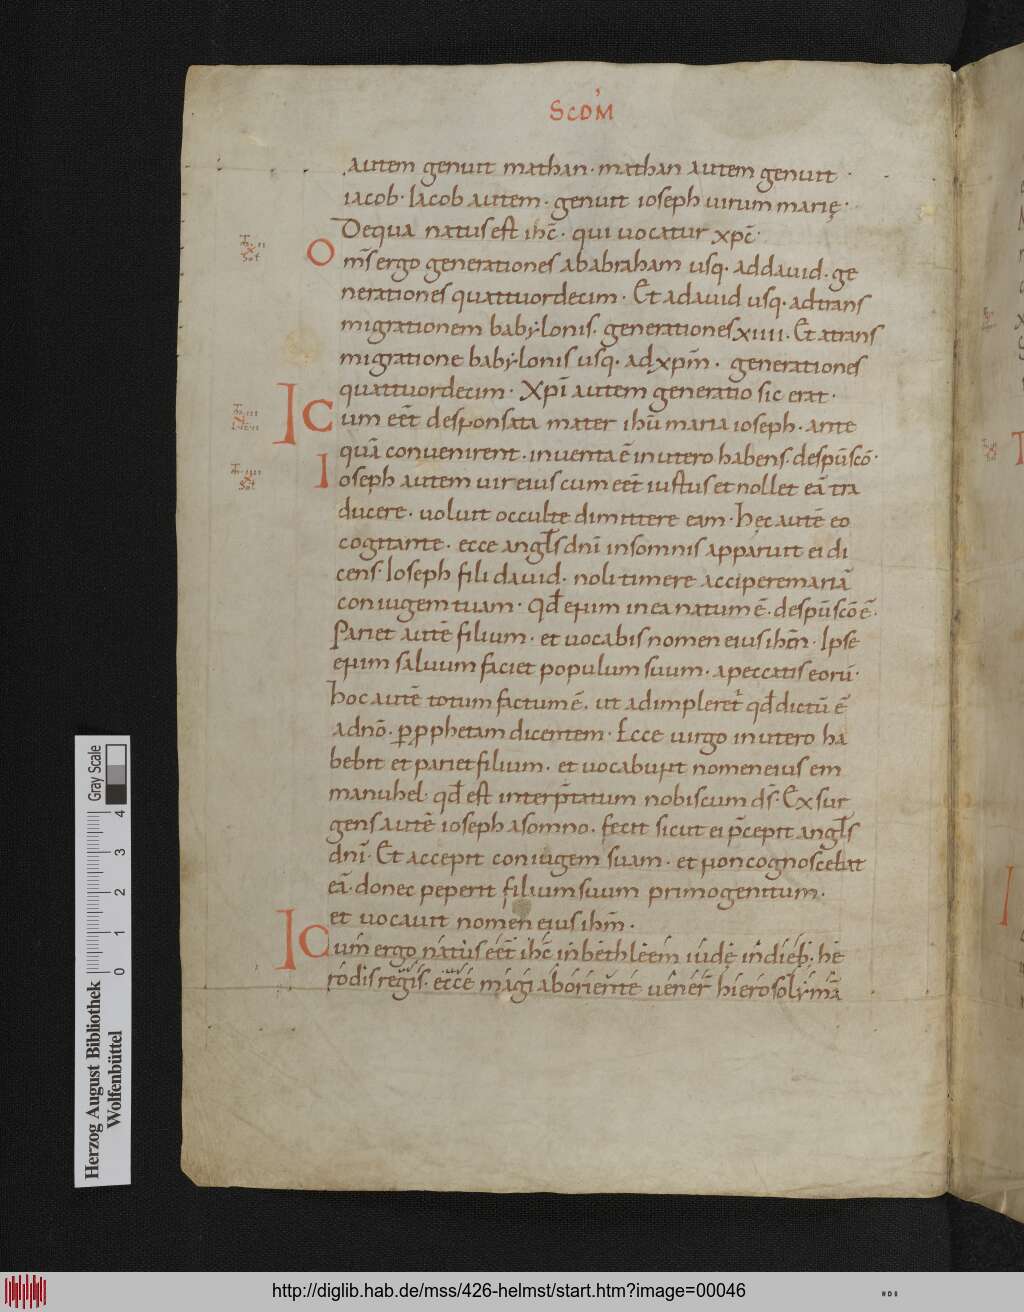 SCDM̄
autem genuit mathan· mathan autem genuit
iacob· Iacob autem· genuit ioseph uirum marię·
De qua natus est ihc̄· qui uocatur xpc̄·
Om̄s ergo generationes ab abraham usq· ad dauid· ge
nerationes quattuordecim· Et a dauid usq· ad trans
migrationem babylonis· generationes xiiii· Et a trans
migratione babylonis usq· ad xpm̄· generationes
quattuordecim· Xpī autem generatio sic erat·
Cum eēt desponsata mater ihū maria ioseph· ante
quā conuenirent· inuenta ē in utero habens· de spū scō·
Ioseph autem uir eius cum eēt iustus et nollet eā tra
ducere· uoluit occulte dimittere eam· hęc autē eo
cogitante· ecce angl̄s dnī in somnis apparuit ei di
cens· Ioseph fili dauid· noli timere accipere mariā
coniugem tuam· Qd̄ enim in ea natum ē· de spū scō ē·
Pariet autē filium· et uocabis nomen eius ihm̄· Ipse
enim saluum faciet populum suum· a peccatis eorū·
hoc autē totum factum ē· ut adimpleret̄ qd̄ dictū ē
a dnō· p̱ p̱phetam dicentem· Ecce uirgo in utero ha
bebit et pariet filium· et uocabunt nomen eius em
manuhel· qd̄ est interp̄tatum nobiscum ds̄· Exsur
gens autē ioseph a somno· fecit sicut ei p̄cepit angl̄s
dnī· Et accepit coniugem suam· et non cognoscebat
eā· donec peperit filium suum primogenitum·
et uocauit nomen eius ihm̄·
Cum ergo natus eēt ihc̄ in bethleem iudę in dieb; he
rodis regis· ecce magi ab oriente uener̄ hierosolymā
Gray Scale
0 1 2 3 4
Herzog August Bibliothek
Wolfenbüttel
http://diglib.hab.de/mss/426-helmst/start.htm?image=00046